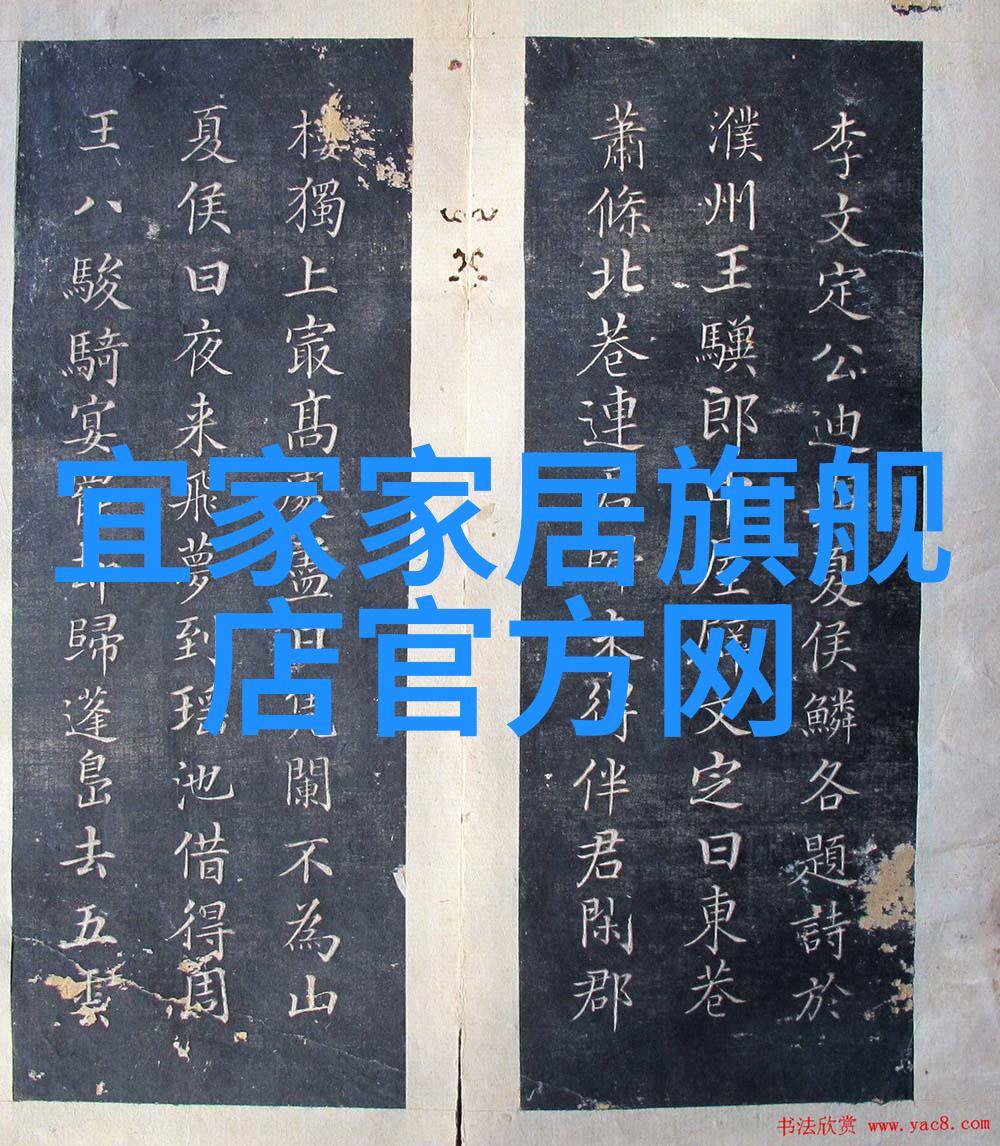 宜家家居旗舰
店官方网
李文定公迪夏侯鱗各題詩於
濮州王驥郎中屋文定曰東巷
蕭條北巷連未得伴君閑郡
樓獨上㝡高處盡日凭闌不為山
夏侯曰夜来飛夢到瑶池借得周
王八駿騎宴歸蓬島去五雲
书法欣赏 www.yac8.com